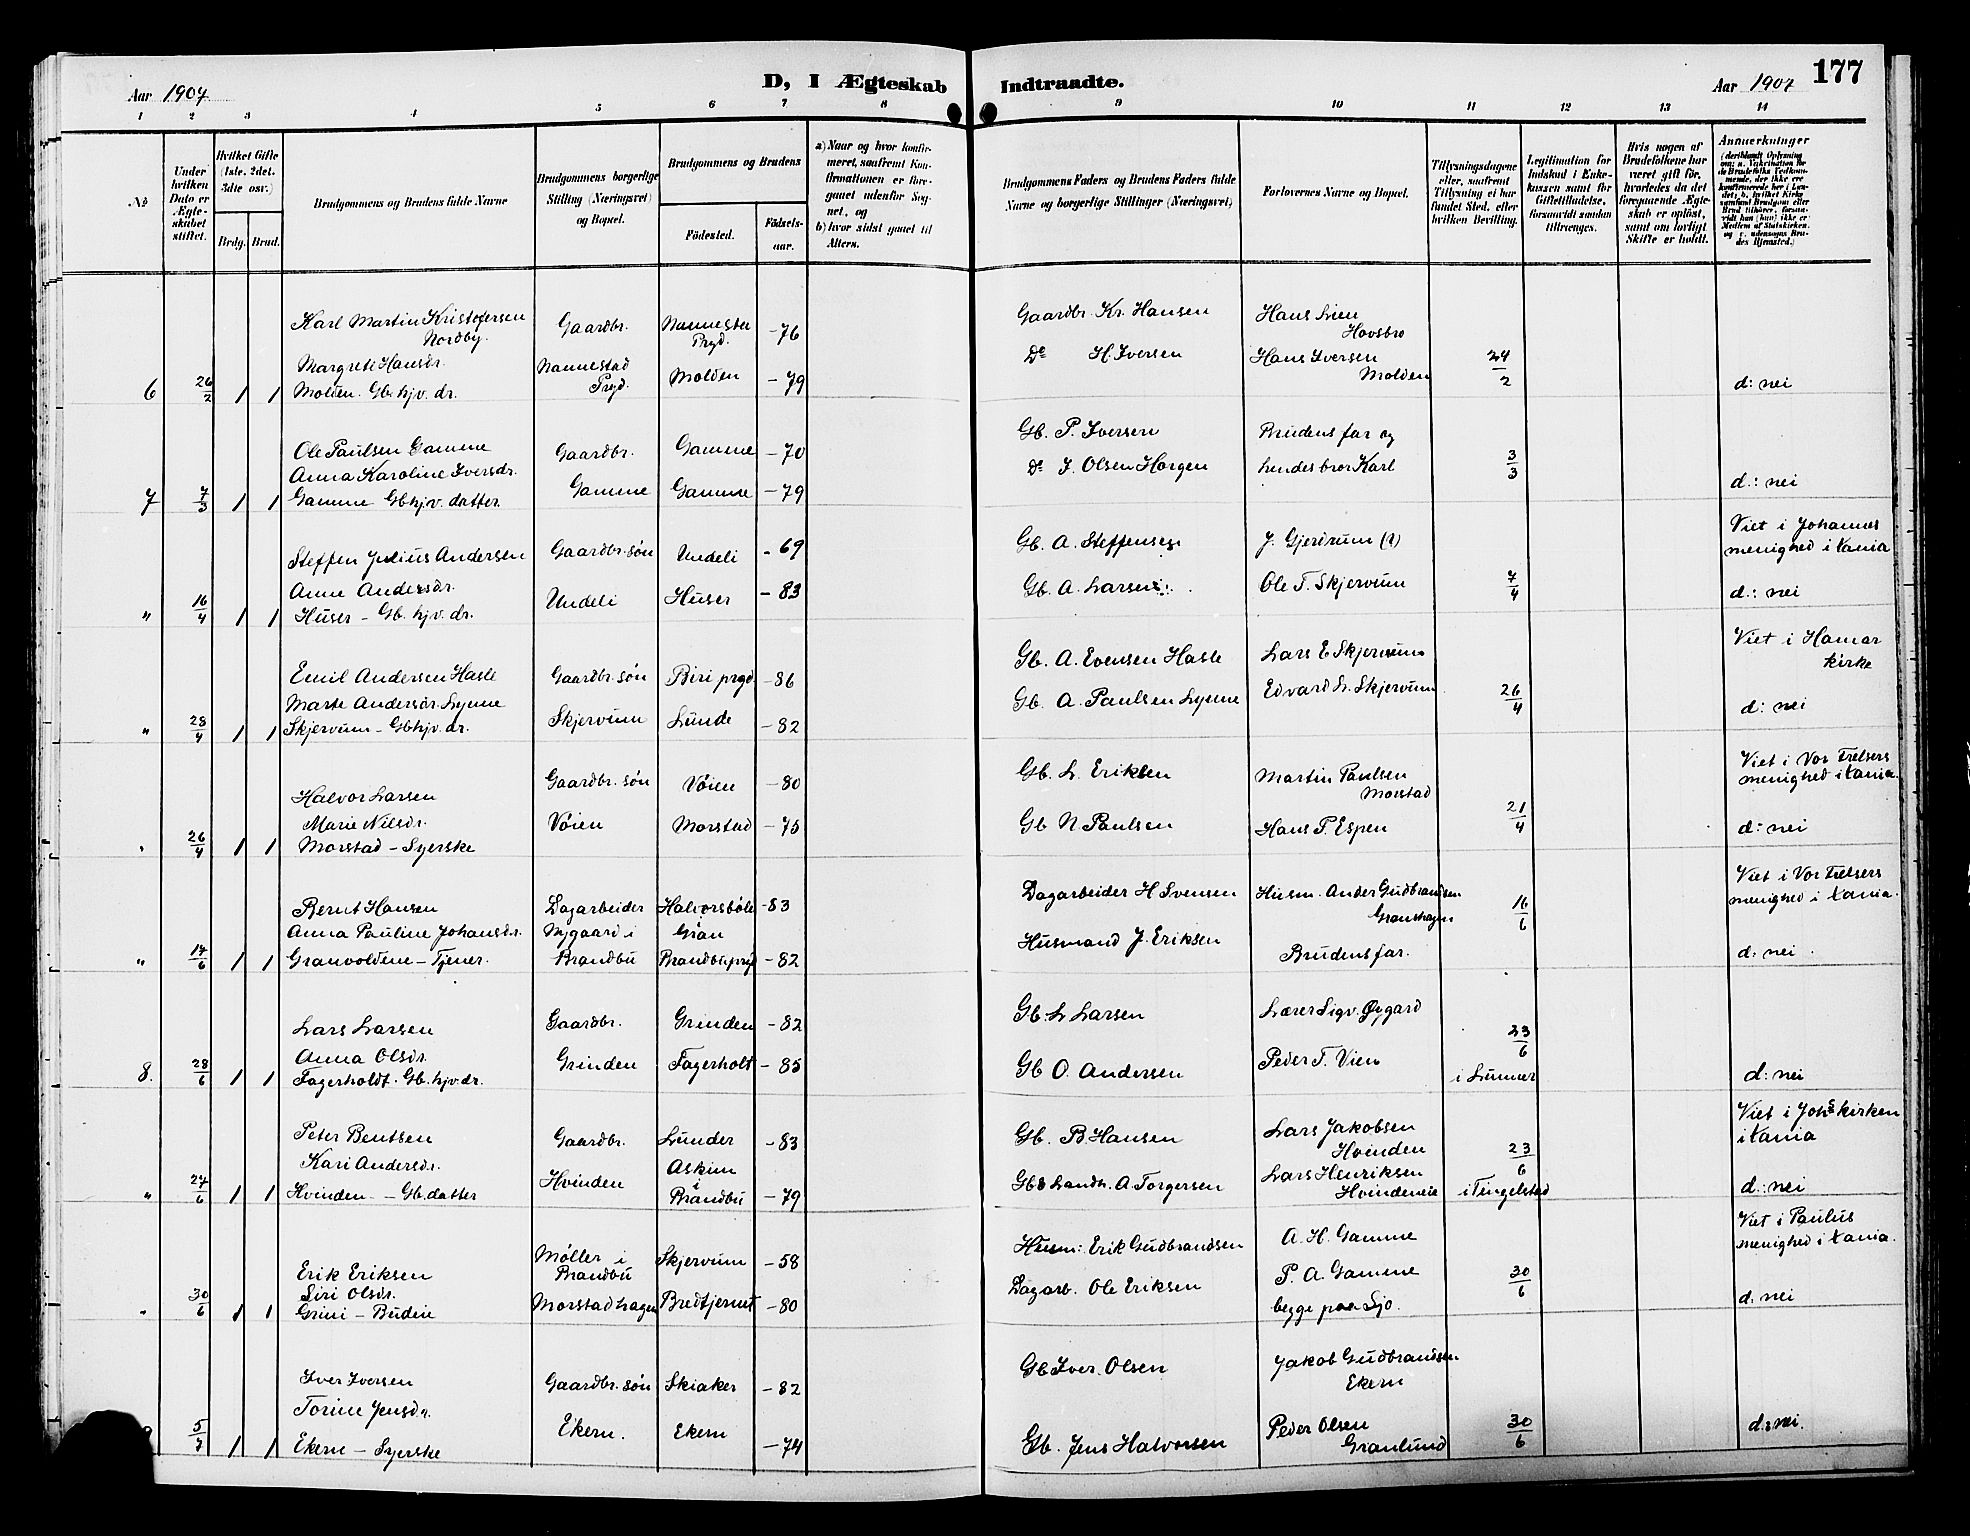 177
Aar 1907
D, I Ægteskab Indtraadte.
Aar 1907
1 2 3 4 5 6 7 8 9 10 11 12 13 14
No
Under hvilken Dato er Ægteskabet stiftet.
Hvilket Gifte (1ste, 2det, 3die osv.)
Brdg. Brud.
Brudgommens og Brudens fulde Navne
Brudgommens borgerlige Stilling (Næringsvei) og Bopæl.
Brudgommens og Brudens
Fødested.
Fødselsaar.
a) Naar og hvor konfirmeret, saafremt Konfirmationen er foregaaet udenfor Sognet, og
b) hvor sidst gaaet til Alters.
Brudgommens Faders og Brudens Faders fulde Navne og borgerlige Stillinger (Næringsvei)
Forlovernes Navne og Bopæl.
Tillysningsdagene eller, saafremt Tillysning ei har fundet Sted, efter hvilken Bevilling.
Legitimation for Indskud i Enkekassen samt for Giftetilladelse, forsaavidt saadan tiltrænges.
Hvis nogen af Brudefolkene har været gift før, hvorledes da det foregaaende Ægteskab er opløst, samt om lovligt Skifte er holdt.
Anmerkninger
Karl Martin Kristofersen Nordby. Gaardbr. Nannestad Prgd. -76 Gaardbr. Kr. Hansen Hans Lien Hovsbro
6 26/2 1 1 Margrete Hansdr. Molden. Gb. hjv. dr. Nannestad Prgd. Molden -79 Do H. Iversen Hans Iversen Molden 24/2 d: nei
Ole Paulsen Gamme Gaardbr. Gamme -70 Gb. P. Iversen Brudens far og
7 7/3 1 1 Anna Karoline Iversdr. Gamme Gbhjv. datter. Gamme Gamme -79 Do I. Olsen Horgen hendes bror Karl 3/3 d.: nei
Steffen Julius Andersen Gaardbr. søn Undeli -69 Gb. A. Steffensen J. Gjerdrum (?) Viet i Johannes menighed i Xania
" 16/4 1 1 Anne Andersdr. Huser - Gb. hjv. dr. Undeli Huser -83 Gb. A. Larsen Ole T. Skjervum 7/4 d.: nei
Emil Andersen Hasle Gaardbr. søn Biri prgd -86 Gb. A. Evensen Hasle Lars E Skjervum Viet i Hamar kirke
" 28/4 1 1 Marte Andersdr. Lynne Skjervum - Gbhjv. dr. Skjervum Lunde -82 Gb. A. Paulsen Lynne Edvard L. Skjervum 26/4 d: nei
Halvor Larsen Gaardbr. søn Vøien -80 Gb. L. Eriksen Martin Paulsen Morstad Viet i Vor Frelsers menighed i Xania.
" 26/4 1 1 Marie Nilsdr. Morstad - Syerske Vøien Morstad -75 Gb N Paulsen Hans P. Espen 21/4 d: nei
Bernt Hansen Dagarbeider Halvorsbøle -83 Dagarbeider H Svensen Husm. Anders Gudbrandsen Granshagen Viet i Vor Frelsers menighed i Xania.
" 17/6 1 1 Anna Pauline Johansdr. Granvoldene - Tjener. Nygaard i Brandbu Gran Brandbuprgd -82 Husmand J. Eriksen Brudens far. 16/6 d: nei
Lars Larsen Gaardbr. Grinden -82 Gb. L Larsen Lærer Sigv. Øygard
8. 28/6 1 1 Anna Olsdr. Fagerholdt. Gb. hjv. dr. Grinden Fagerholt -85 Gb O. Andersen Peder T. Vien 23/6 i Lunner d: nei
Peter Bentsen Gaardbr. Lunder -83 Gb. B. Hansen Lars Jakobsen Hvinden Viet i Johs kirken i Xania
" 27/6 1 1 Kari Andersdr. Hvinden - Gb. datter Hvinden Askim i Brandbu -79 Gb & Landh. A. Torgersen Lars Henriksen Hvindeneie 23/6 i Tingelstad d.: nei
Erik Eriksen Møller i Brandbu Skjervum -58 Husm: Erik Gudbrandsen A. H. Gamme Viet i Paulus menighed i Xania.
" 30/6 1 1 Siri Olsdr. Grini - Budeie Morstadhagen Bredtjernet -80 Dagarb. Ole Eriksen P. A. Gamme begge paa Sjo. 30/6 d: nei
Iver Iversen Gaardbr. søn Skiaker -82 Gb Iver Olsen Jakob Gudbrandsen Ekern
5/7 1 1 Torine Jensdr. Ekern - Syerske Ekern. Ekern -74 Gb. Jens Halvorsen Peder Olsen Granlund 30/6 d: nei.